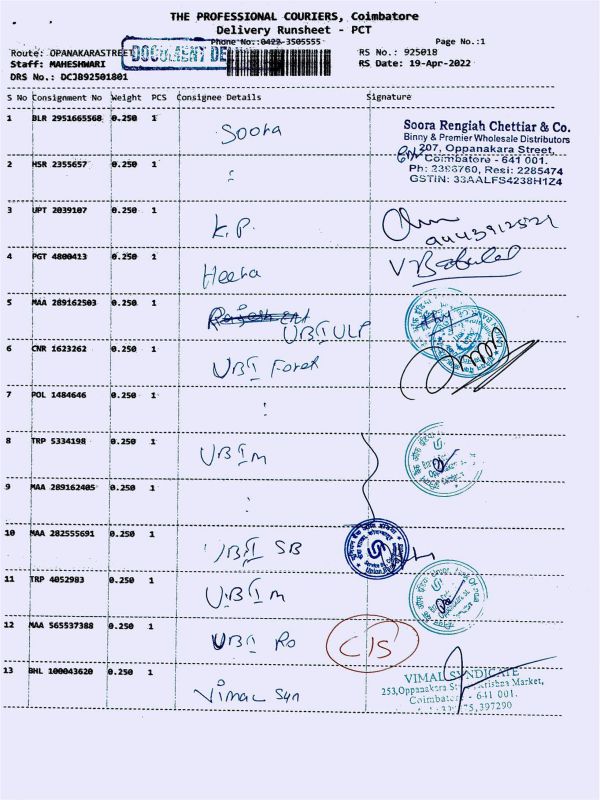 THE PROFESSIONAL COURIERS, Coimbatore
Delivery Runsheet - PCT
Phone No.:0422-3505555 Page No.:1
Route: OPANAKARASTREET DOCUMENT DEL RS No.: 925018
Staff: MAHESHWARI RS Date: 19-Apr-2022
DRS No.: DCJB92501801
S No Consignment No Weight PCS Consignee Details Signature
1 BLR 2951665568 0.250 1 Soora
Soora Rengiah Chettiar & Co.
Binny & Premier Wholesale Distributors
207, Oppanakara Street,
Coimbatore - 641 001.
Ph: 2396760, Resi: 2285474
GSTIN: 33AALFS4238H1Z4
2 HSR 2355657 0.250 1 :
3 UPT 2039107 0.250 1 K.P.
9443912521
4 PGT 4800413 0.250 1 Heera V Babulal
5 MAA 289162503 0.250 1 UBI ULP
6 CNR 1623262 0.250 1 UBI Forex
7 POL 1484646 0.250 1 :
8 TRP 5334198 0.250 1 UBI M
9 MAA 289162405 0.250 1 :
10 MAA 282555691 0.250 1 UBI SB
11 TRP 4052983 0.250 1 UBI M
12 MAA 565537388 0.250 1 UBI Ro CIS
13 BHL 100043620 0.250 1 Vimal Syn
VIMAL SYNDICATE
253, Oppanakara Krishna Market,
Coimbatore - 641 001.
75,397290